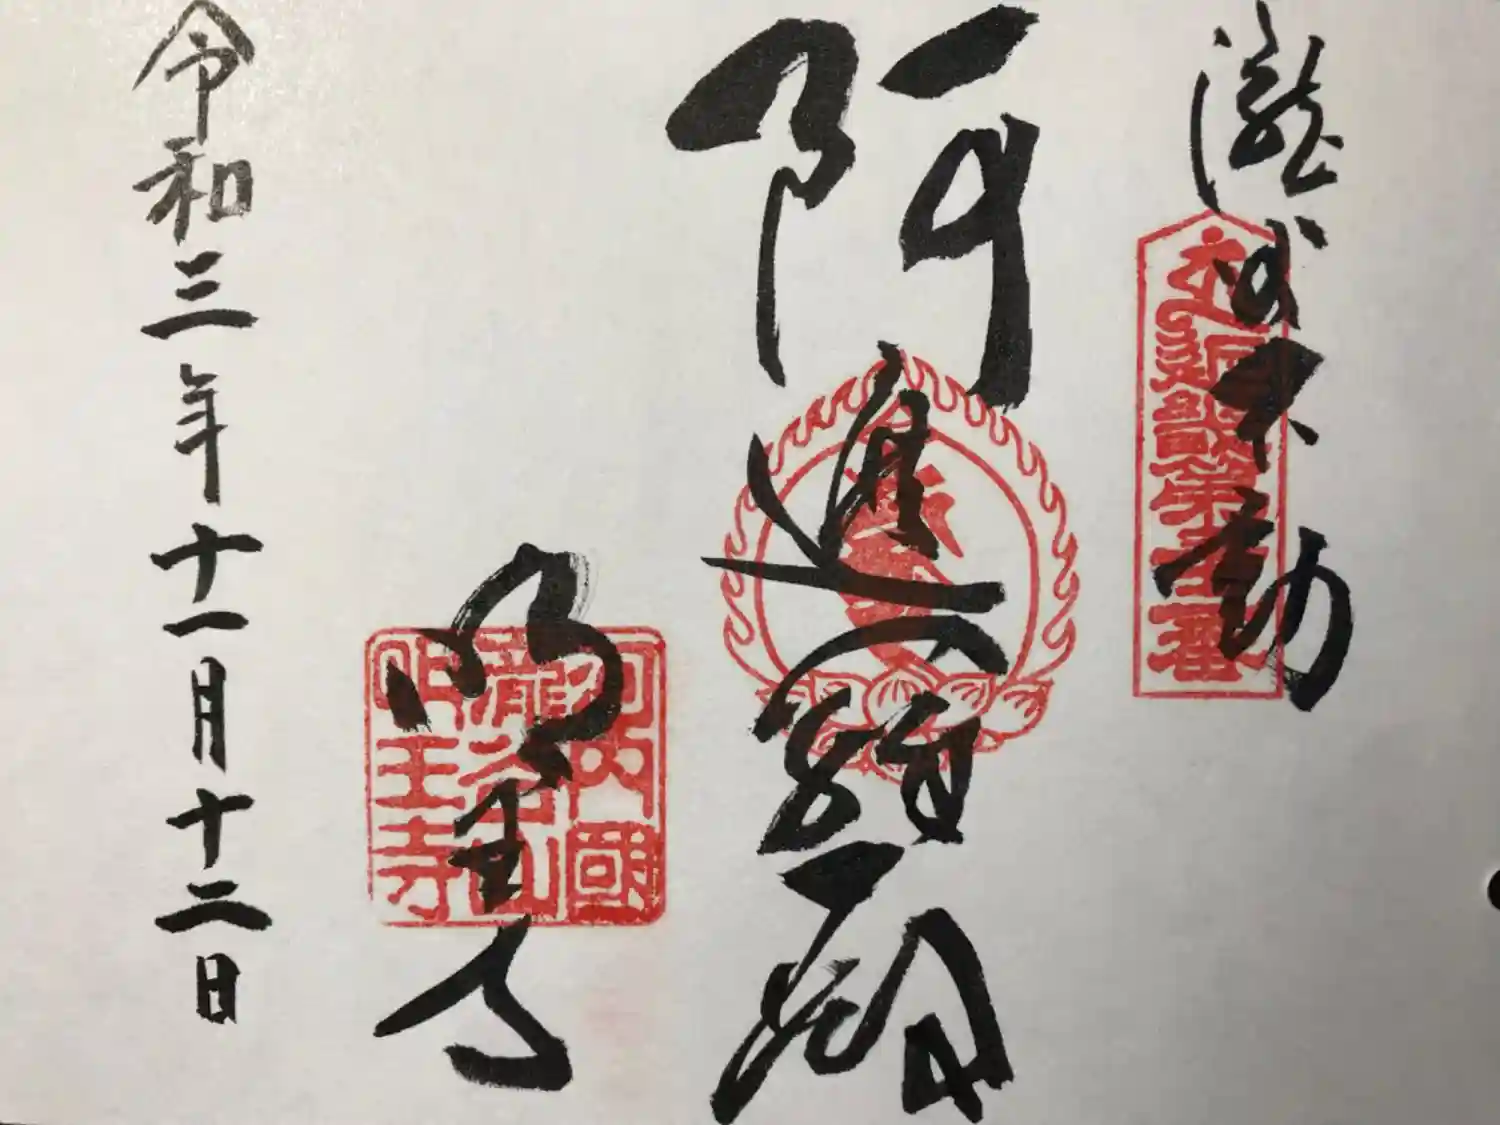 瀧谷不動
阿遮羅
河内國
瀧谷山
明王寺
明王寺
令和三年十一月十二日